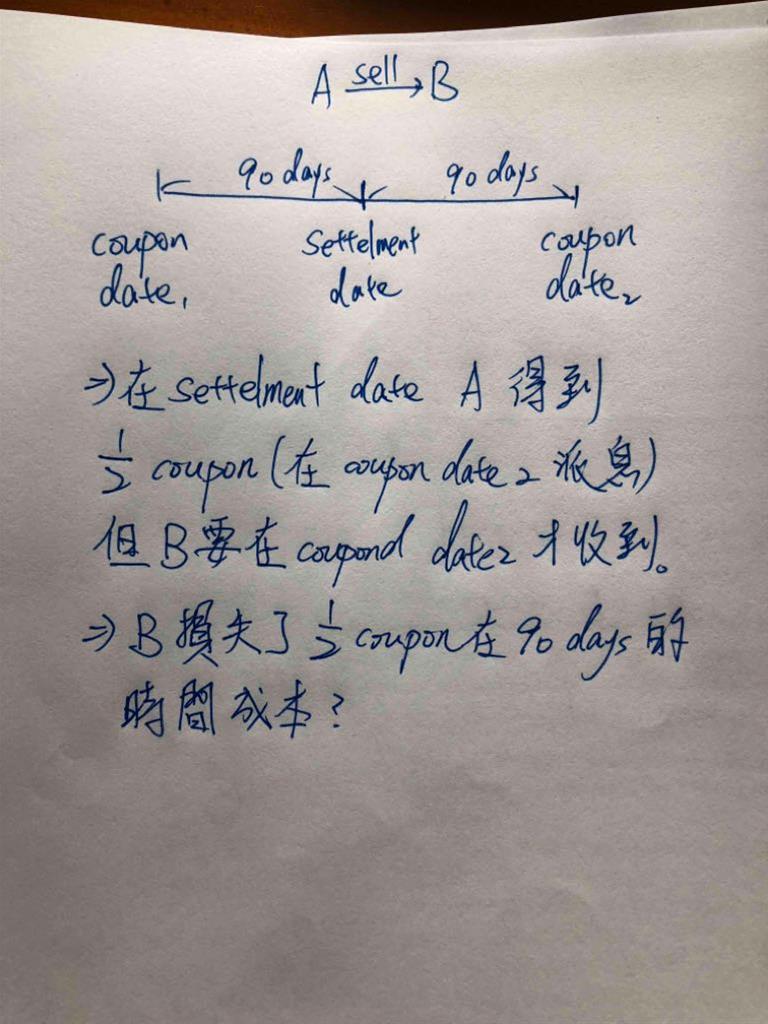 A sell B
90 days 90 days
coupon date1 Settelment date coupon date2
⇒在 settelment date A 得到
1/2 coupon (在 coupon date2 派息)
但 B 要在 coupond date2 才收到。
⇒ B 損失了 1/2 coupon 在 90 days 的
時間成本?